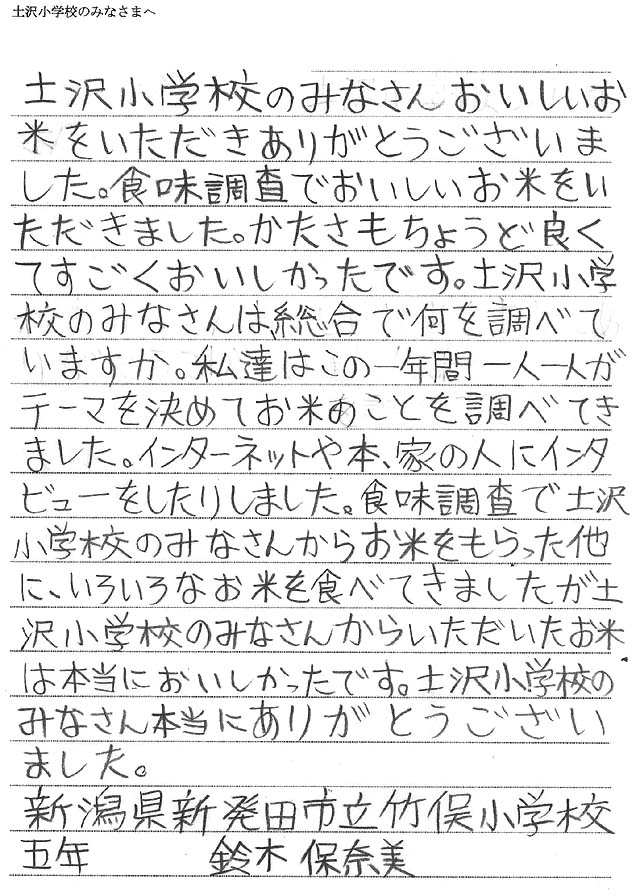 土沢小学校のみなさまへ
土沢小学校のみなさんおいしいお
米をいただきありがとうございま
した。食味調査でおいしいお米をい
ただきました。かたさもちょうど良く
てすごくおいしかったです。土沢小学
校のみなさんは、総合で何を調べて
いますか。私達はこの一年間一人一人が
テーマを決めてお米のことを調べてき
ました。インターネットや本、家の人にインタ
ビューをしたりしました。食味調査で土沢
小学校のみなさんからお米をもらった他
に、いろいろなお米を食べてきましたが土
沢小学校のみなさんからいただいたお米
は本当においしかったです。土沢小学校の
みなさん本当にありがとうござい
ました。
新潟県新発田市立竹俣小学校
五年 鈴木保奈美